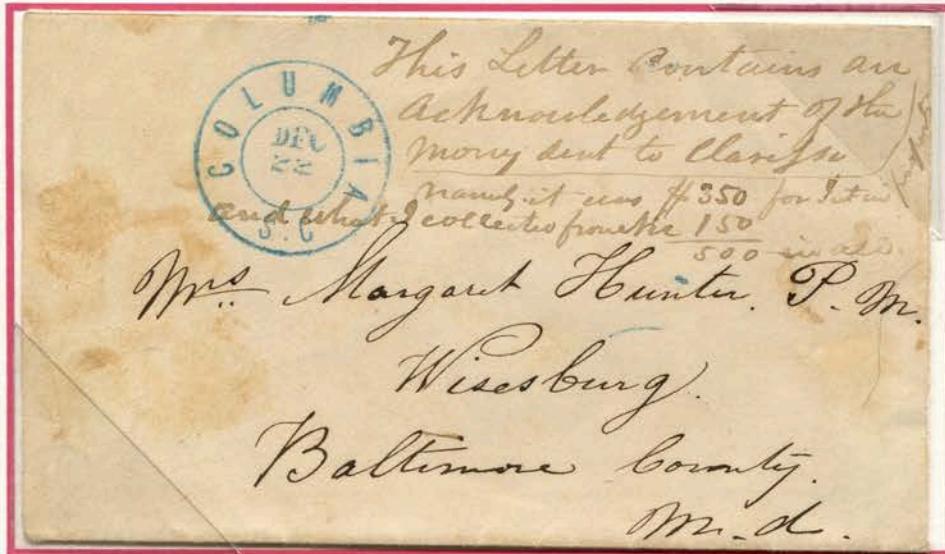 COLUMBIA
DEC
22
S.C
This Letter Contains an
Acknowledgement of the
Money sent to Clarissa
namely it was $350 for
and what I collected from 150
500 in all.
Mrs. Margaret Hunter. P. M.
Wisesburg.
Baltimore County.
M.d.